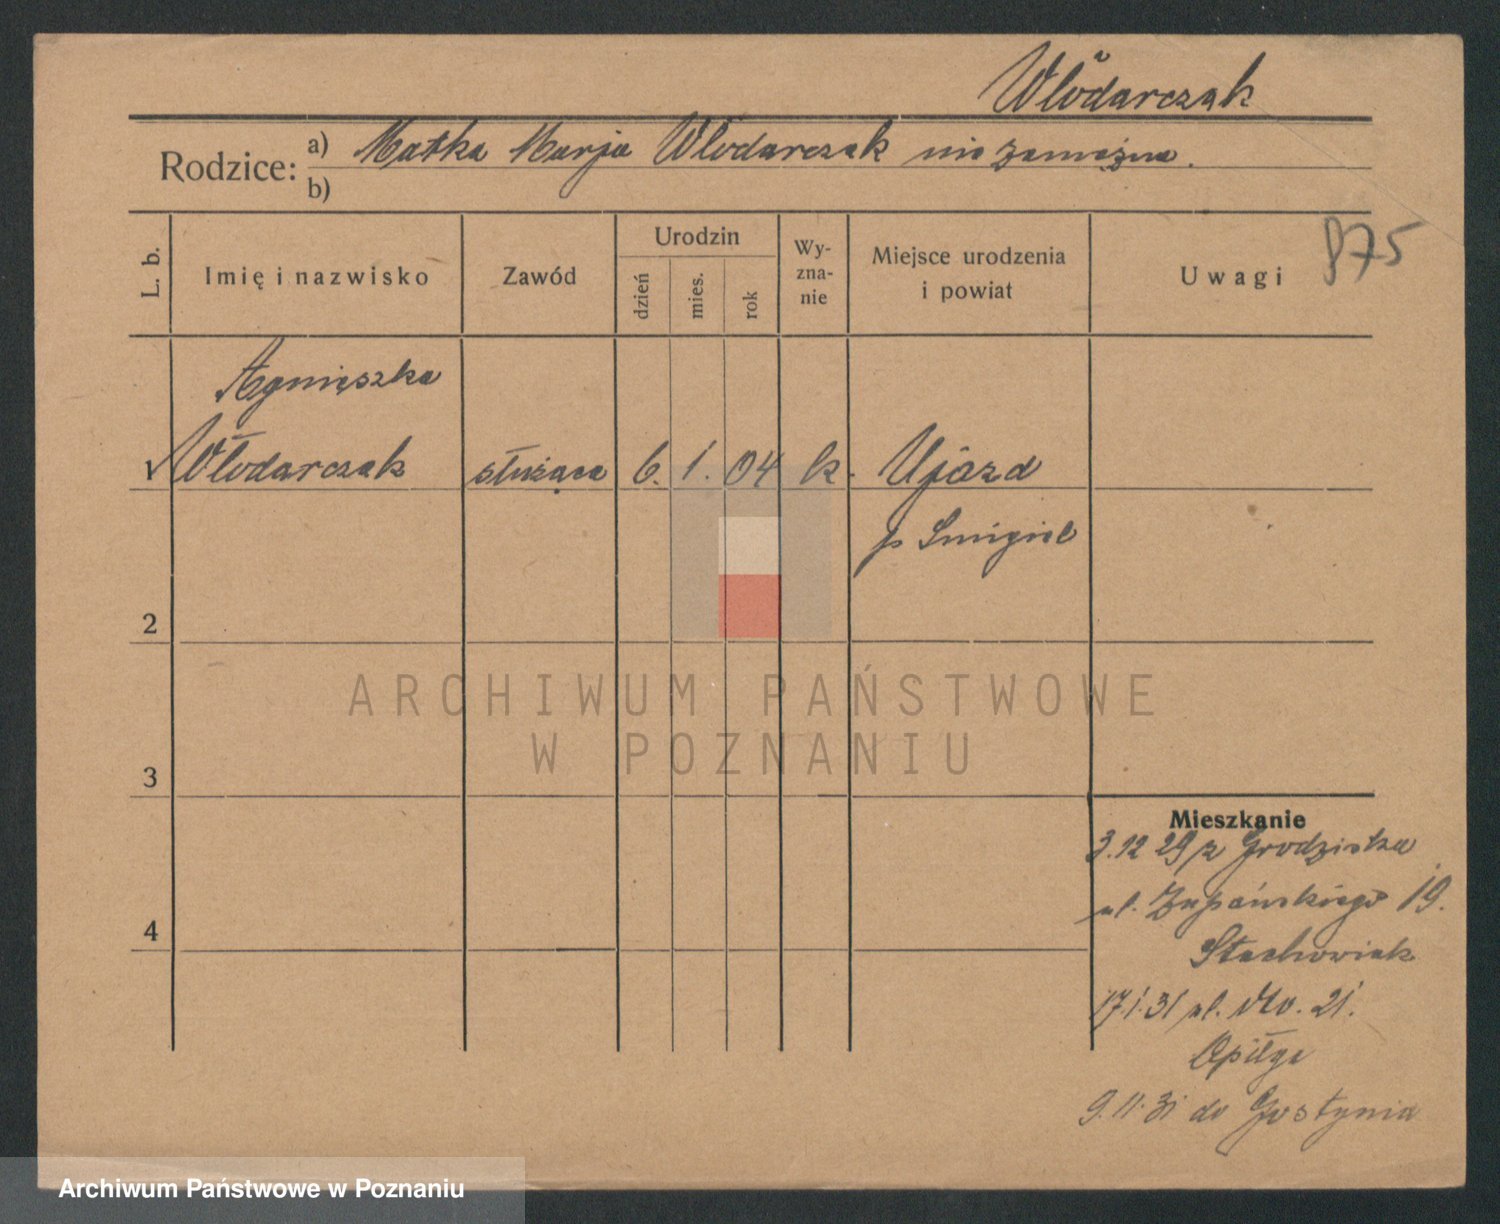 Włodarczak
Rodzice: a) Matka Marja Włodarczak nie zamężna.
b)
875
L. b.
Imię i nazwisko
Zawód
Urodzin
dzień
mies.
rok
Wy-
zna-
nie
Miejsce urodzenia
i powiat
Uwagi
Agnieszka
1 Włodarczak służąca 6. 1. 04 k. Ujazd
p Smigiel
2
3
4
Mieszkanie
3.12 29 z Grodziska
ul. Żupańskiego 19.
Stachowiak
17.1.31 ul. dto. 21.
9.11.31 do Gostynia
ARCHIWUM PAŃSTWOWE
W POZNANIU
Archiwum Państwowe w Poznaniu